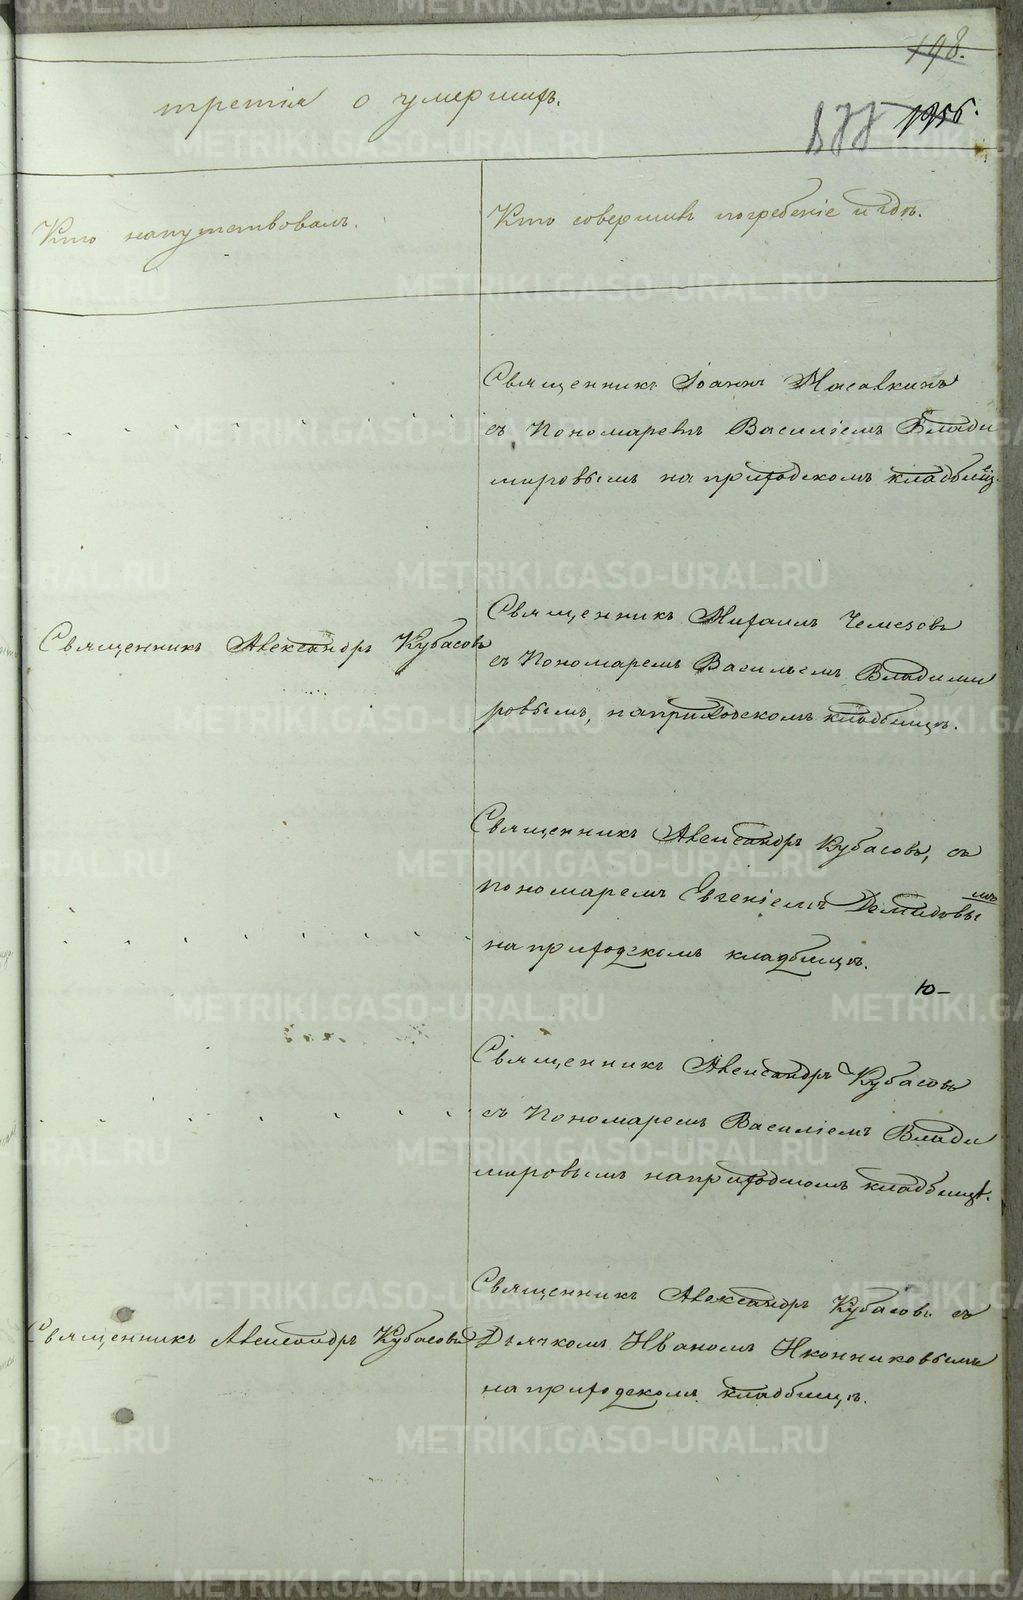 198.
третія о умершихъ.
1956.
Кто напутствовалъ.
Кто совершалъ погребеніе и гдѣ.
Священникъ Іоаннъ
съ Пономаремъ Василіемъ Влади
мировымъ на приходскомъ кладбищѣ.
Священникъ Александръ Кубасовъ
Священникъ Михаилъ Чемезовъ
съ Пономаремъ Васильемъ Владими
ровымъ, на приходскомъ кладбищѣ.
Священникъ Александръ Кубасовъ, съ
пономаремъ Евгеніемъ Демидовымъ
на приходскомъ кладбищѣ.
Ю-
Священникъ Александръ Кубасовъ
съ Пономаремъ Василіемъ Влади
мировымъ на приходскомъ кладбищѣ.
Священникъ Александръ Кубасовъ
Священникъ Александръ Кубасовъ съ
Дьячкомъ Иваномъ Иконниковымъ
на приходскомъ кладбищѣ.
METRIKI.GASO-URAL.RU